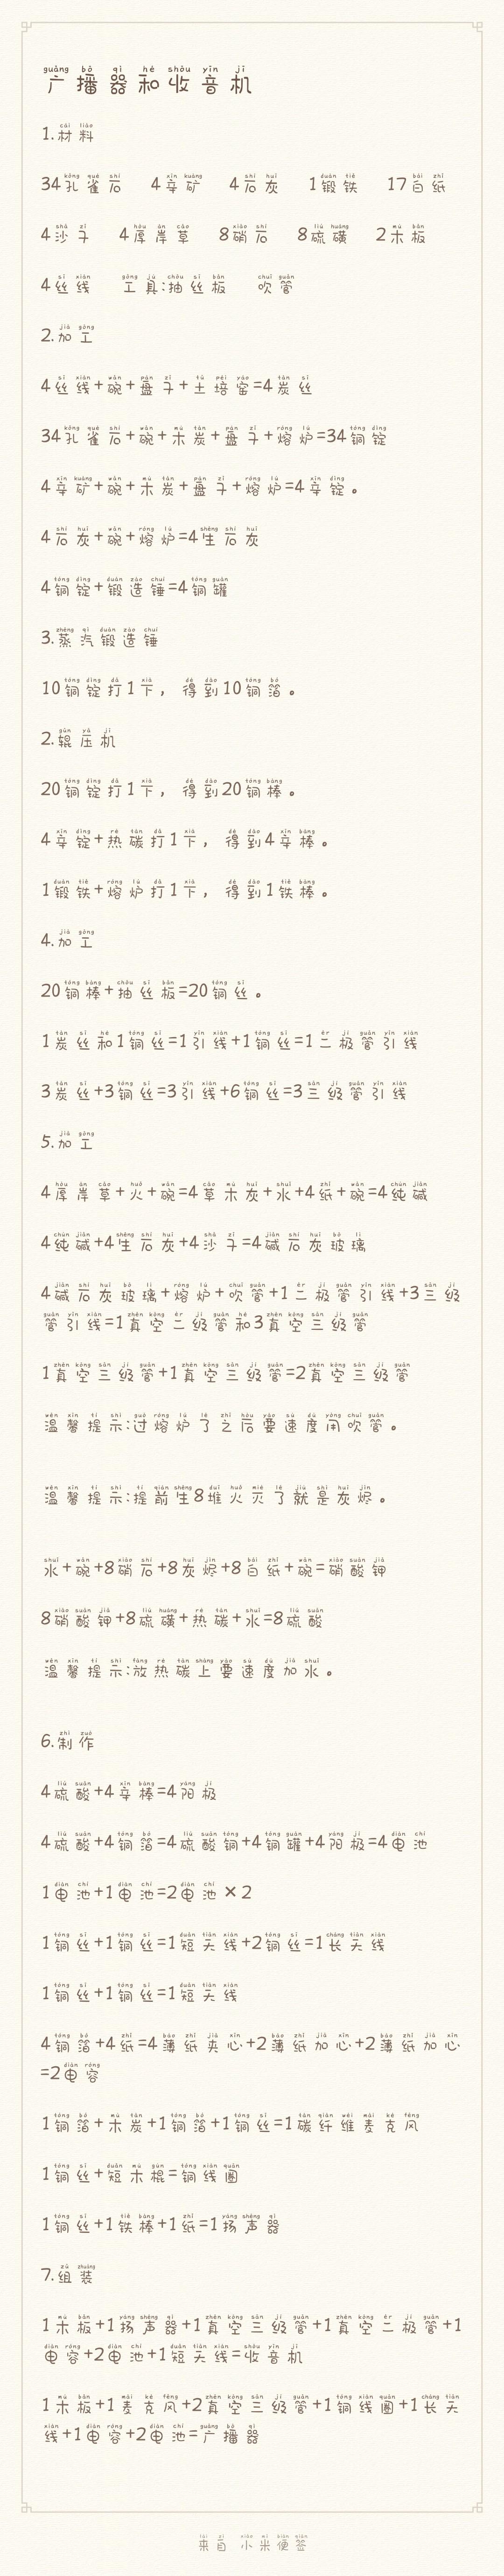 广播器和收音机
1.材料
34孔雀石 4辛矿 4石灰 1锻铁 17白纸
4沙子 4厚岸草 8硝石 8硫磺 2木板
4丝线 工具:抽丝板 吹管
2.加工
4丝线+碗+盘子+土培窑=4炭丝
34孔雀石+碗+木炭+盘子+熔炉=34铜锭
4辛矿+碗+木炭+盘子+熔炉=4辛锭。
4石灰+碗+熔炉=4生石灰
4铜锭+锻造锤=4铜罐
3.蒸汽锻造锤
10铜锭打1下，得到10铜箔。
2.辊压机
20铜锭打1下，得到20铜棒。
4辛锭+热碳打1下，得到4辛棒。
1锻铁+熔炉打1下，得到1铁棒。
4.加工
20铜棒+抽丝板=20铜丝。
1炭丝和1铜丝=1引线+1铜丝=1二极管引线
3炭丝+3铜丝=3引线+6铜丝=3三级管引线
5.加工
4厚岸草+火+碗=4草木灰+水+4纸+碗=4纯碱
4纯碱+4生石灰+4沙子=4碱石灰玻璃
4碱石灰玻璃+熔炉+吹管+1二极管引线+3三级
管引线=1真空二级管和3真空三级管
1真空三级管+1真空三级管=2真空三级管
温馨提示:过熔炉了之后要速度用吹管。
温馨提示:提前生8堆火灭了就是灰烬。
水+碗+8硝石+8灰烬+8白纸+碗=硝酸钾
8硝酸钾+8硫磺+热碳+水=8硫酸
温馨提示:放热碳上要速度加水。
6.制作
4硫酸+4辛棒=4阳极
4硫酸+4铜箔=4硫酸铜+4铜罐+4阳极=4电池
1电池+1电池=2电池×2
1铜丝+1铜丝=1短天线+2铜丝=1长天线
1铜丝+1铜丝=1短天线
4铜箔+4纸=4薄纸夹心+2薄纸加心+2薄纸加心
=2电容
1铜箔+木炭+1铜箔+1铜丝=1碳纤维麦克风
1铜丝+短木棍=铜线圈
1铜丝+1铁棒+1纸=1扬声器
7.组装
1木板+1扬声器+1真空三级管+1真空二极管+1
电容+2电池+1短天线=收音机
1木板+1麦克风+2真空三级管+1铜线圈+1长天
线+1电容+2电池=广播器
来自 小米便签